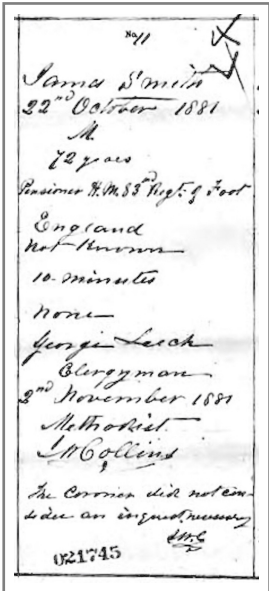 No 11
James Smith
22nd October 1881
M.
72 years
Pensioner H.M. 83rd Regt. of Foot
England
Not Known
10 minutes
None
George Leech
Clergyman
2nd November 1881
Methodist
Collins
The Coroner did not con-
sider an inquest necessary
021745